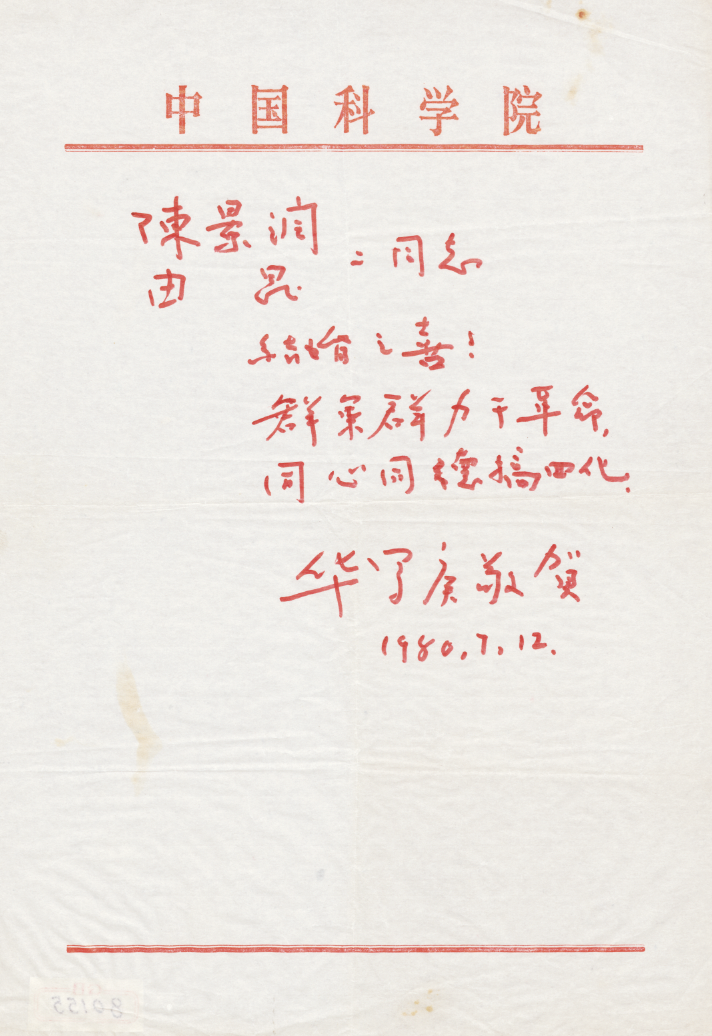 中国科学院
陳景润
由昆
二同志
结婚之喜！
群策群力干革命，
同心同德搞四化．
华罗庚敬贺
1980.7.12.